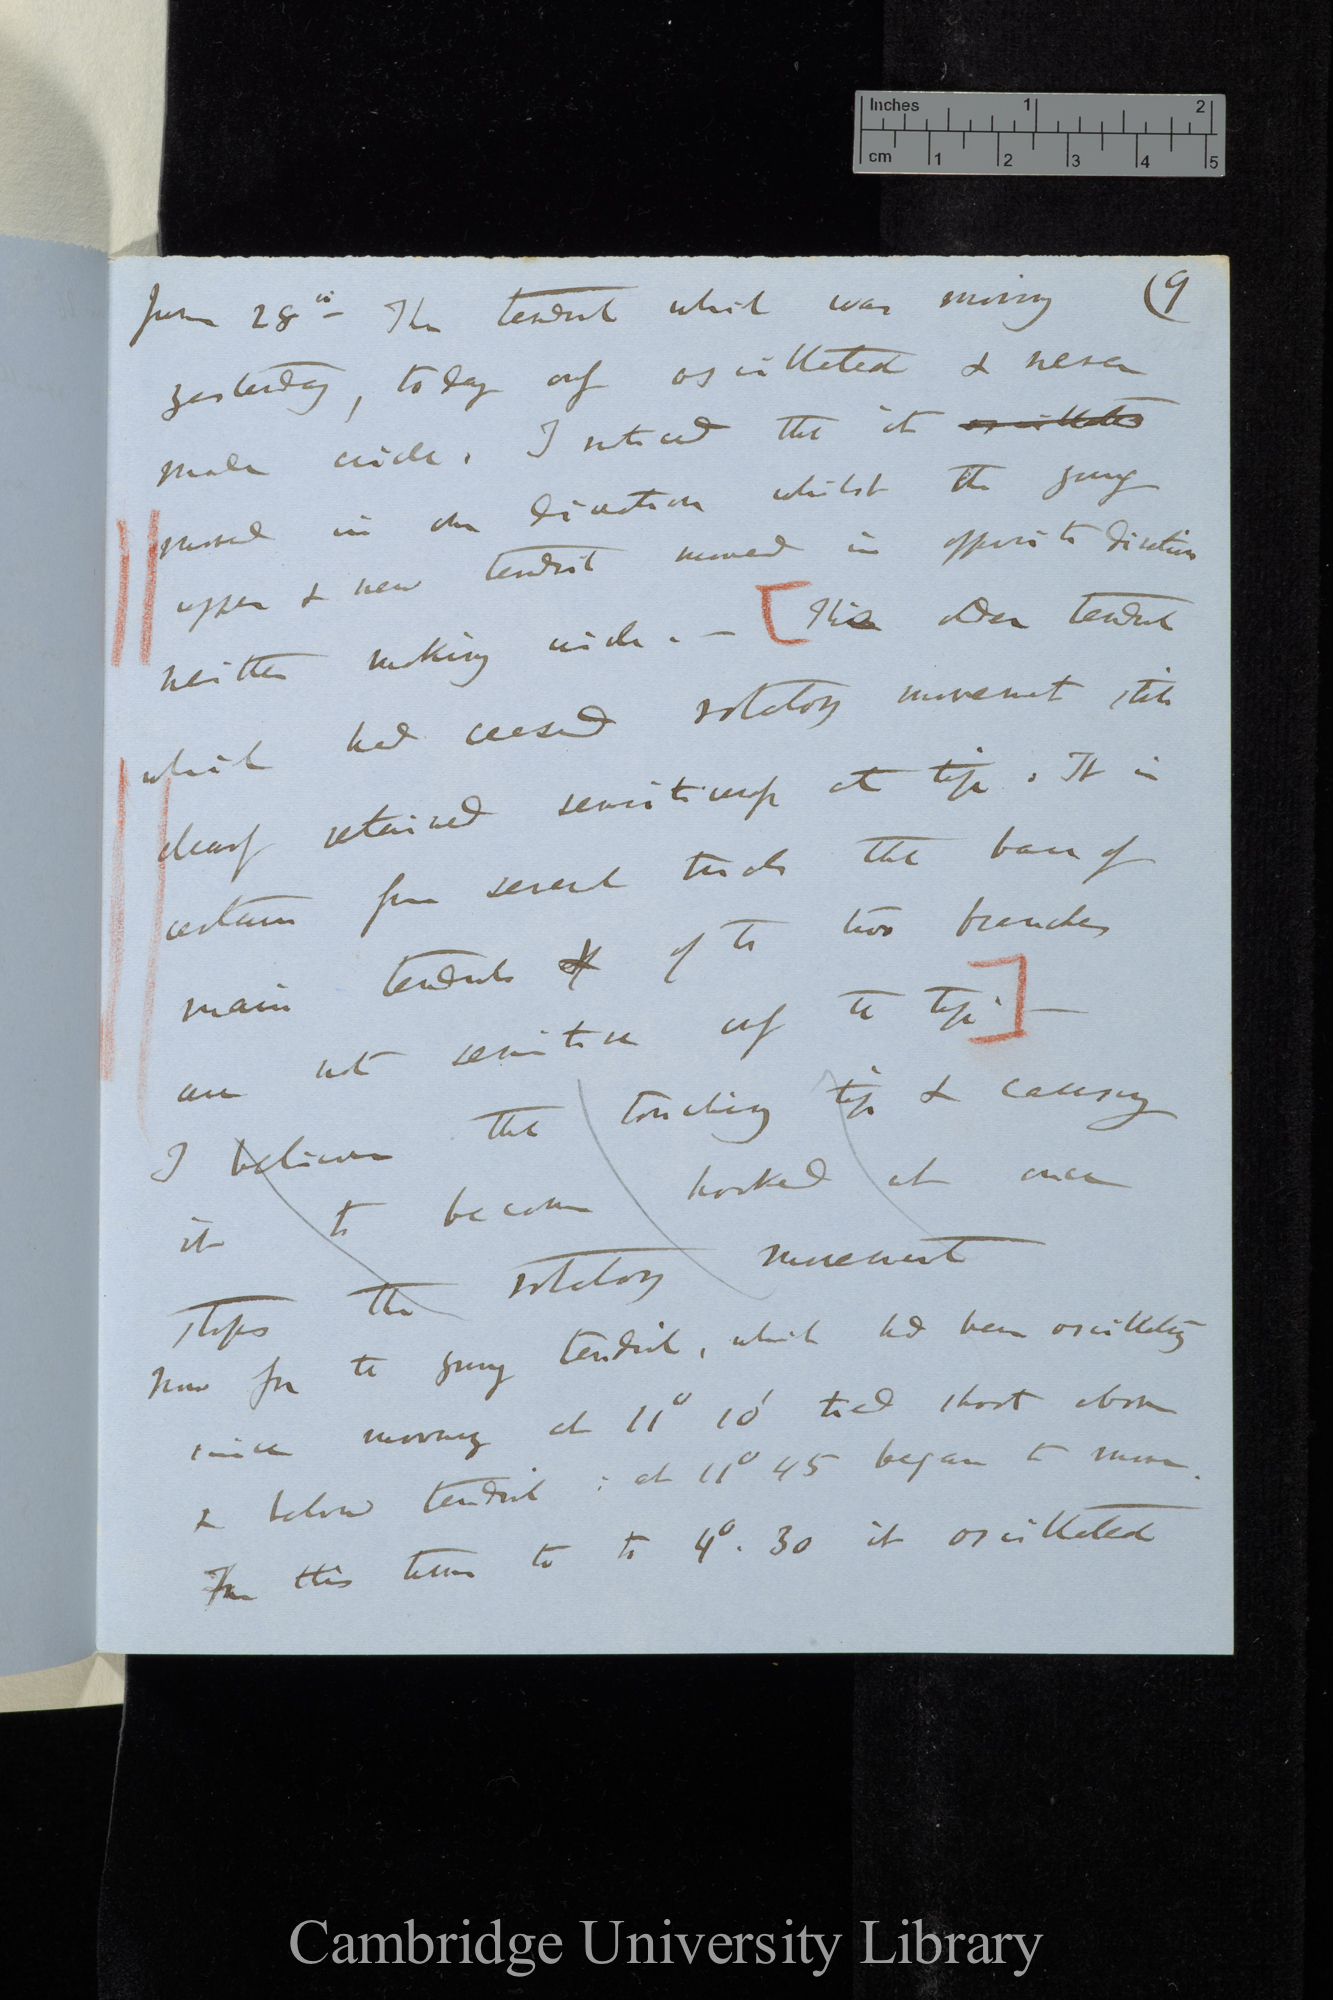 Inches 1 2
cm 1 2 3 4 5
(9
June 28th — The tendril which was moving
yesterday, today only oscillated & never
made circle. I noticed that it oscillated
moved in one direction whilst the young
upper & new tendril moved in opposite direction
neither making circle. — [This older tendril
which had ceased rotatory movement still
clearly retained sensitiveness at tip. It is
certain from several trials that the base of
main tendrils of the two branches
are not sensitive only the tip] —
I believe that touching tip & causing
it to become hooked at once
stops the rotatory movement
Now for the young tendril, which had been oscillating
since morning at 11° 10' tied short above
& below tendril : at 11° 45 began to move.
From this time to to 4°. 30 it oscillated
Cambridge University Library